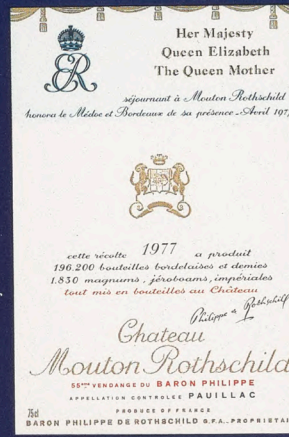 Her Majesty
Queen Elizabeth
The Queen Mother
séjournant à Mouton Rothschild
honora le Médoc et Bordeaux de sa présence - Avril 197
cette récolte 1977 a produit
196.200 bouteilles bordelaises et demies
1.830 magnums, jéroboams, impériales
tout mis en bouteilles au Château
Philippe de Rothschild
Chateau
Mouton Rothschild
55ème VENDANGE DU BARON PHILIPPE
APPELLATION CONTROLEE PAUILLAC
PRODUCE OF FRANCE
75cl
BARON PHILIPPE DE ROTHSCHILD G.F.A., PROPRIETA